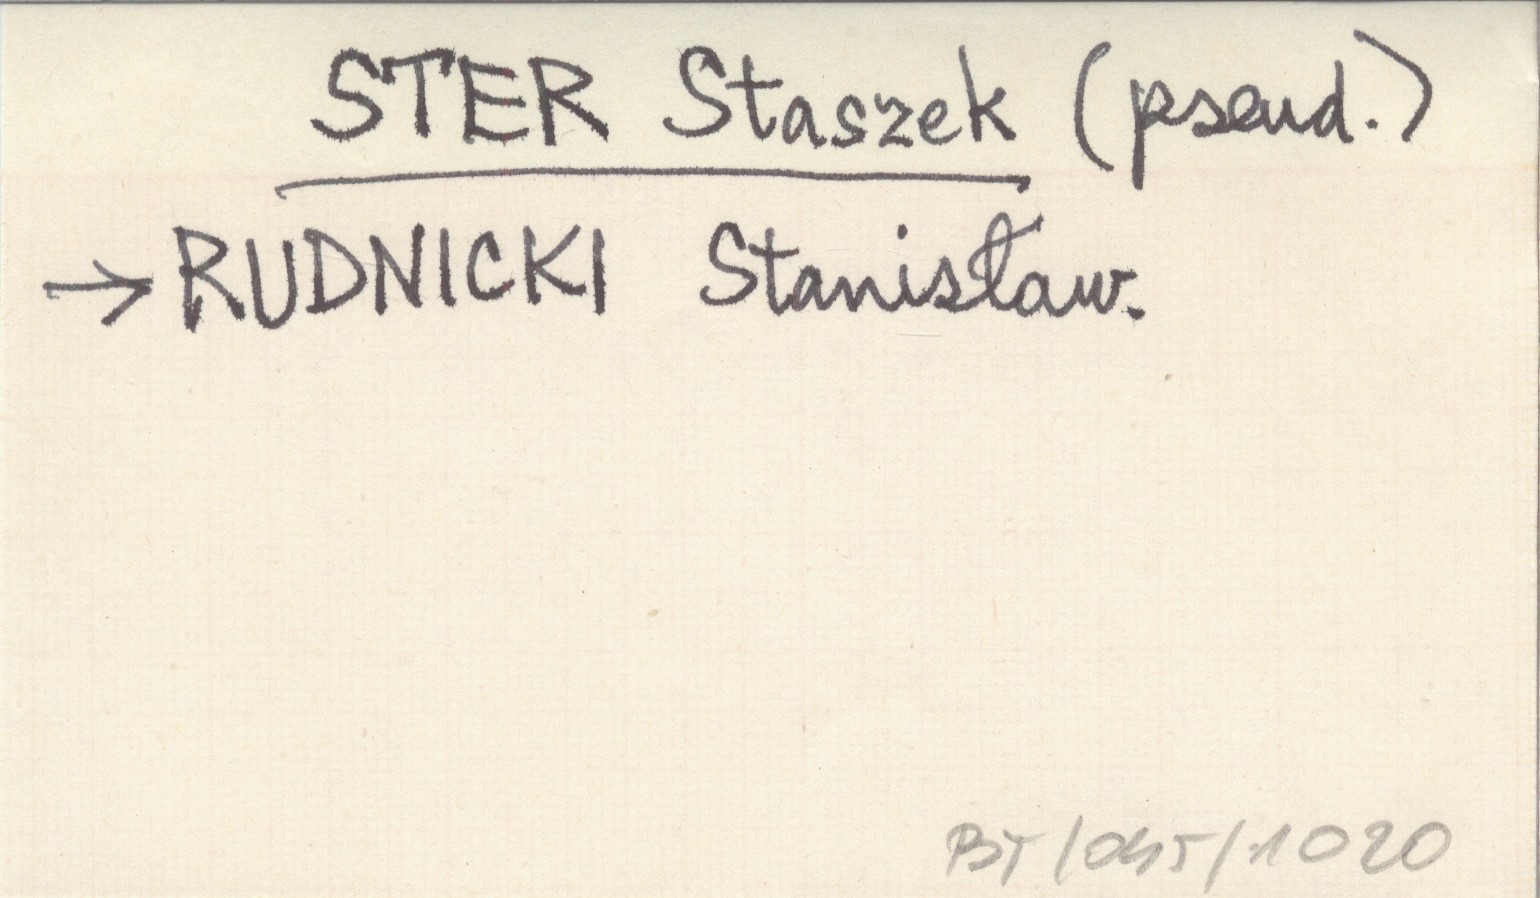 STER Staszek (pseud.)
→ RUDNICKI Stanisław.
BT/045/1020